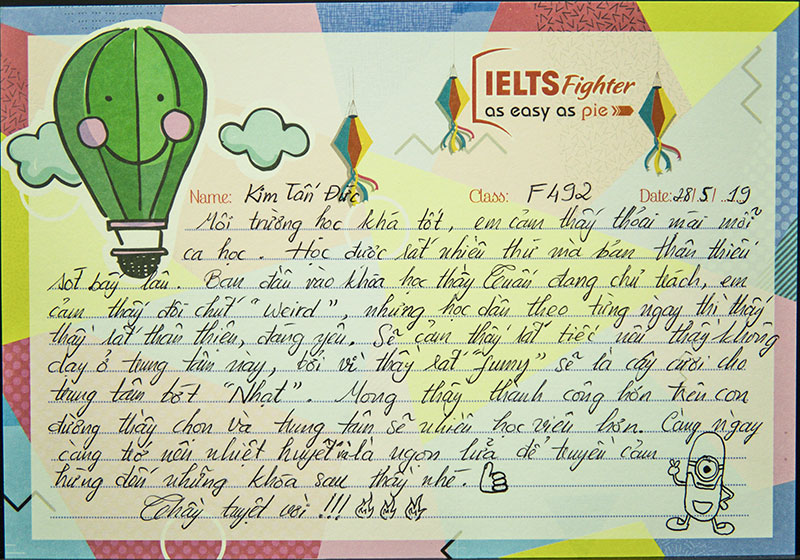 IELTS Fighter
as easy as pie
Name: Kim Tấn Đức Class: F492 Date: 28/5/19
Môi trường học khá tốt, em cảm thấy thoải mái mỗi
ca học. Học được rất nhiều thứ mà bản thân thiếu
sót bấy lâu. Ban đầu vào khóa học thầy Tuấn đang chủ trách, em
cảm thấy đôi chút "Weird", nhưng học dần theo từng ngày thì thấy
thầy rất thân thiện, đáng yêu. Sẽ cảm thấy rất tiếc nếu thầy không
dạy ở trung tâm này, bởi vì thầy rất "funny" sẽ là cây cười cho
trung tâm bớt "Nhạt". Mong thầy thành công hơn trên con
đường thầy chọn và trung tâm sẽ nhiều học viên hơn. Càng ngày
càng trở nên nhiệt huyết và là ngọn lửa để truyền cảm
hứng đến những khóa sau thầy nhé.
Thầy tuyệt vời!!!